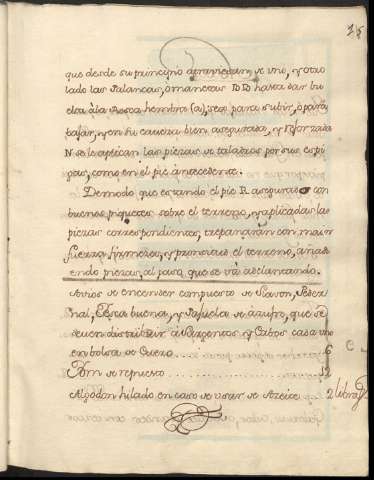 que desde su principio atraviesan de uno, y otro
lado las Palancas, o manetas DD hasta dar bu
elta à la Rosca hembra (a), sea para subir, ò para
bajar, y en su cavera bien asegurada, y reforzada
N se le aplican las piezas de taladros por sus espi
gas, como en el pie antecedente.
Demodo que estando el pie R asegurado con
buenos piquetes sobre el terreno, y aplicadas las
piezas correspondientes, trepanarán con maior
fuerza, firmeza, y promtitud el terreno, añad
endo piezas, al paso que se và adelantando.
Avios de encender compuesto de Eslavon, Peder
nal, Yesca buena, y Pajuela de azufre, que se
deven distribuir à Sargentos y Cabos cada uno
en bolsa de Cuero 6
Ydm de repuesto 12
Algodon hilado en caso de usar de Azeite 2 libras